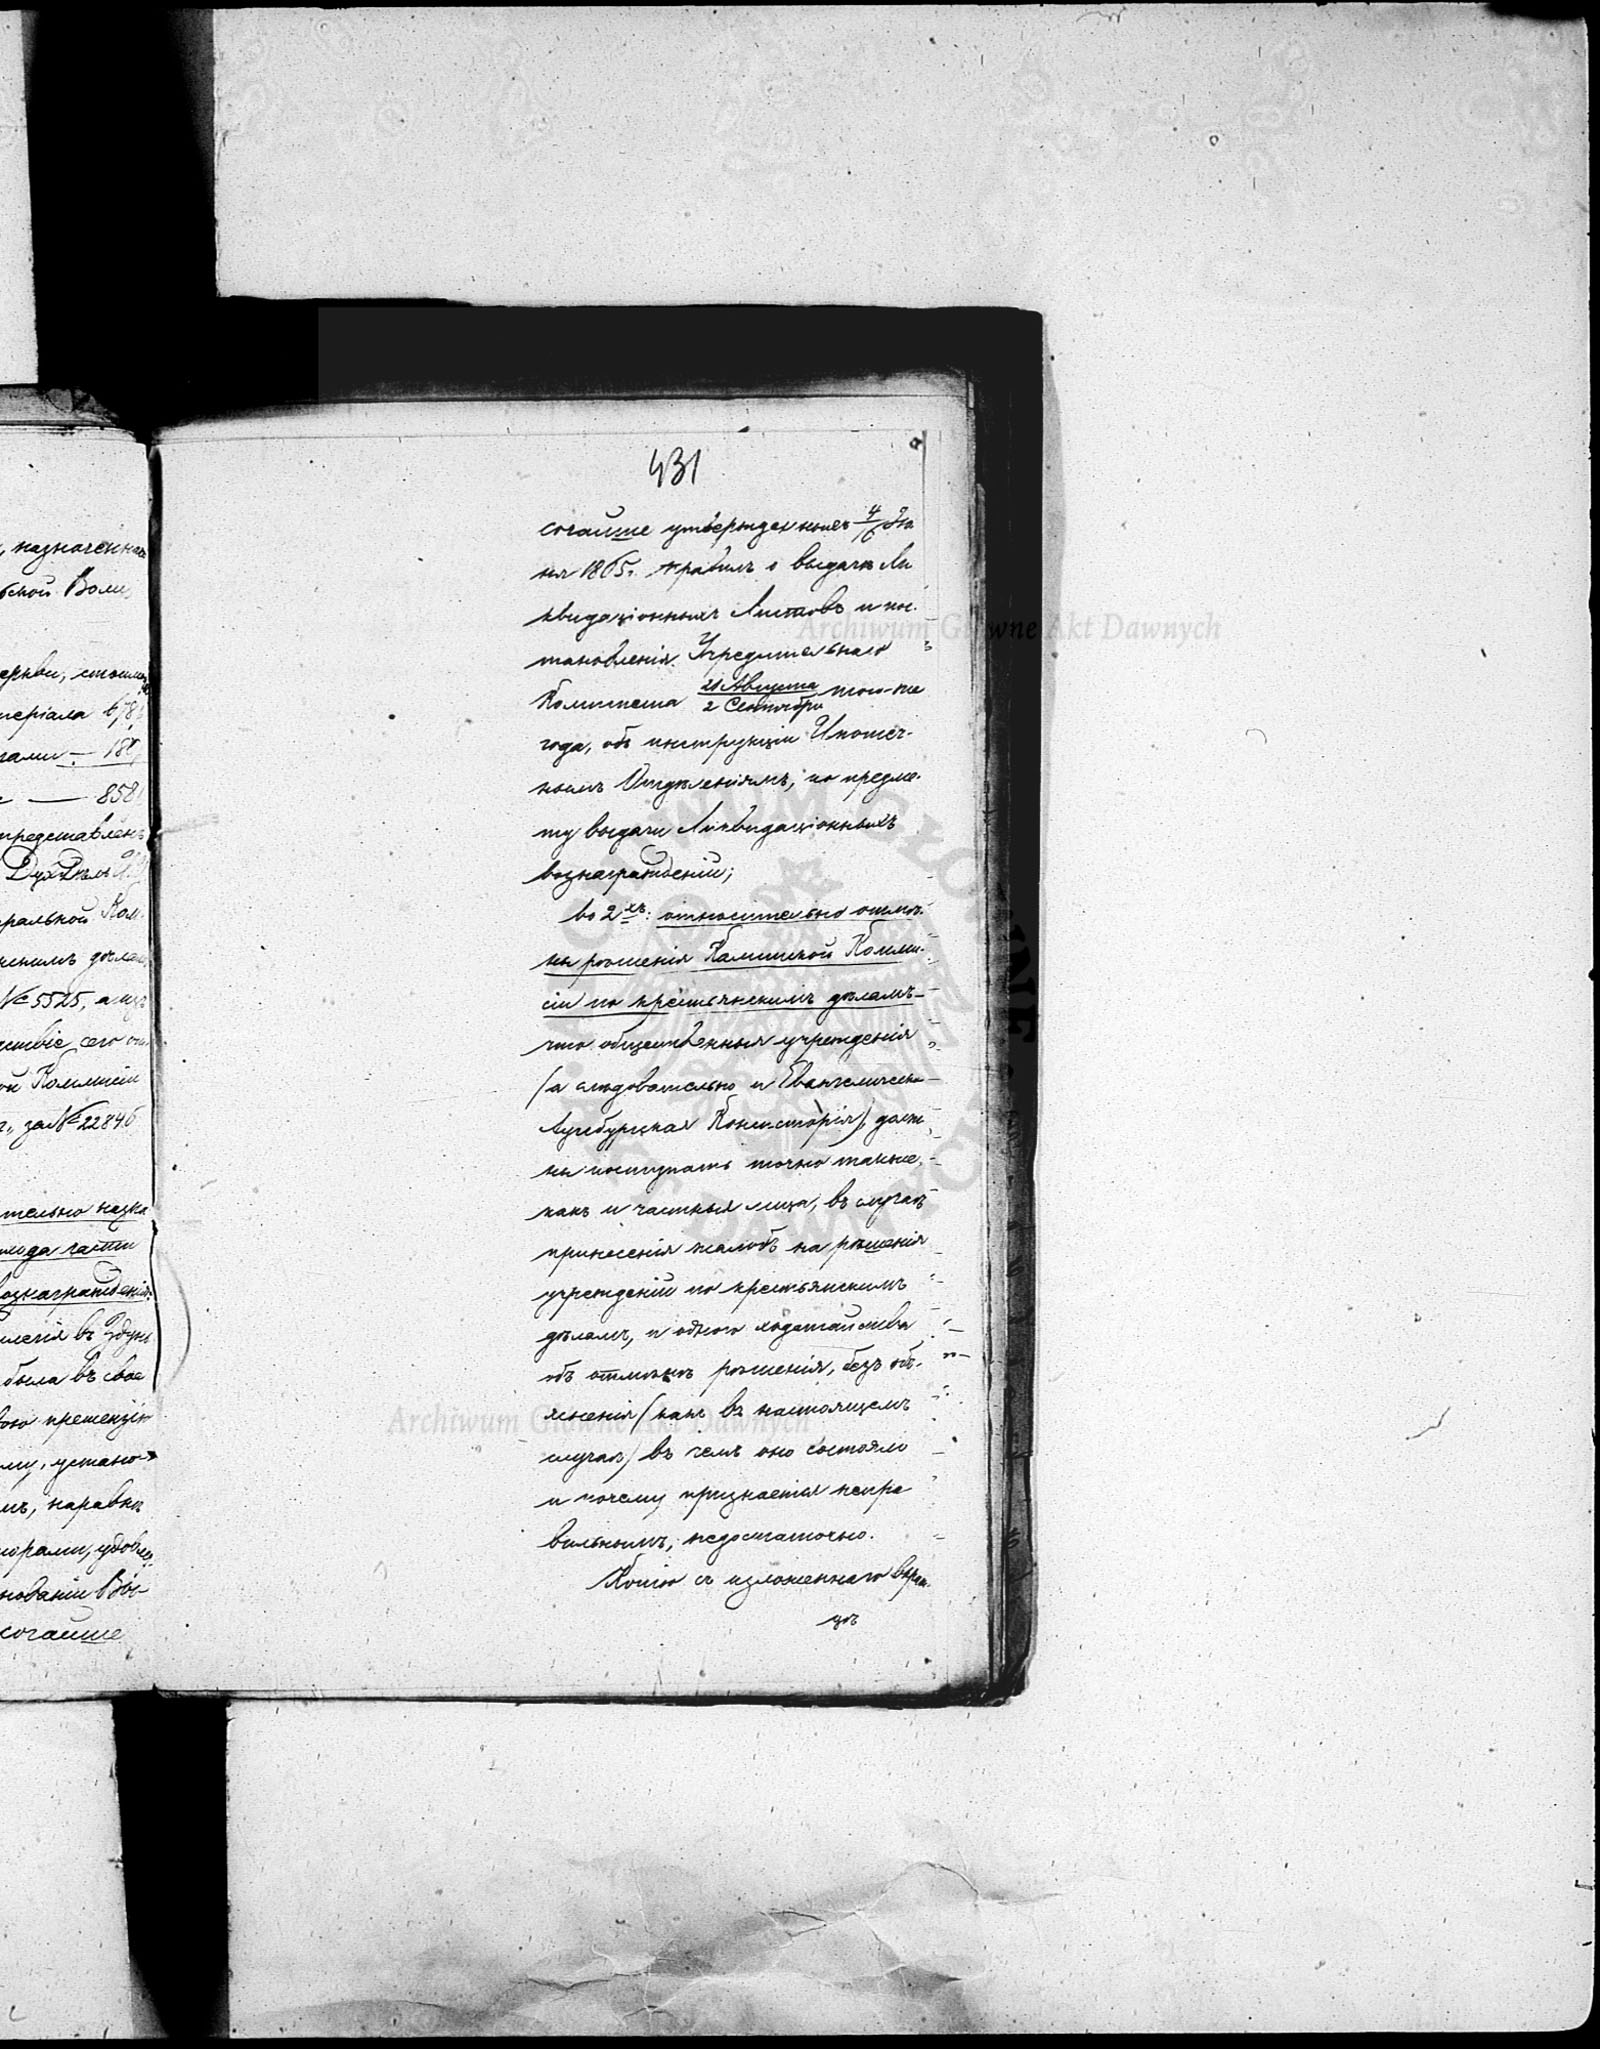 , назначенная
ской Воли,
церкви, стоим
матеріала 678
ами — 180
— 858
представленъ
Дух. Дѣлъ
тральной Ком-
янскимъ дѣламъ
№ 5525, а изъ
ствіе сего от
ой Коммисіи
г., за № 22846
тельно назна
лода части
вознагражденія:
легія въ Здунь
была въ свое
вою претензію
му, устано-
мъ, наравнѣ
торами, удовле
нованіи Вы-
сочайше
431
сочайше утвержденныхъ 4/16 Ію
ня 1865 г. правилъ о выдачѣ Ли
квидаціонныхъ Листовъ и пос-
тановленія Учредительнаго
Комитета 21 Августа / 2 Сентября того-же
года, объ инструкціи Ипотеч-
нымъ Отдѣленіямъ, по предме-
ту выдачи Ликвидаціонныхъ
вознагражденій;
во 2хъ: относительно отмѣ-
ны рѣшенія Калишской Комми-
сіи по крестьянскимъ дѣламъ —
что общественныя учрежденія
(а слѣдовательно и Евангелическо-
Аугсбургская Консисторія), долж
ны поступать точно также,
какъ и частныя лица, въ случаѣ
принесенія жалобъ на рѣшенія
учрежденій по крестьянскимъ
дѣламъ, и одного ходатайства
объ отмѣнѣ рѣшенія, безъ объ-
ясненія (какъ въ настоящемъ
случаѣ) въ чемъ оно состояло
и почему признается непра
вильнымъ, недостаточно.
Копію съ изложеннаго вкрат-
цѣ
Archiwum Główne Akt Dawnych
Archiwum Główne Akt Dawnych